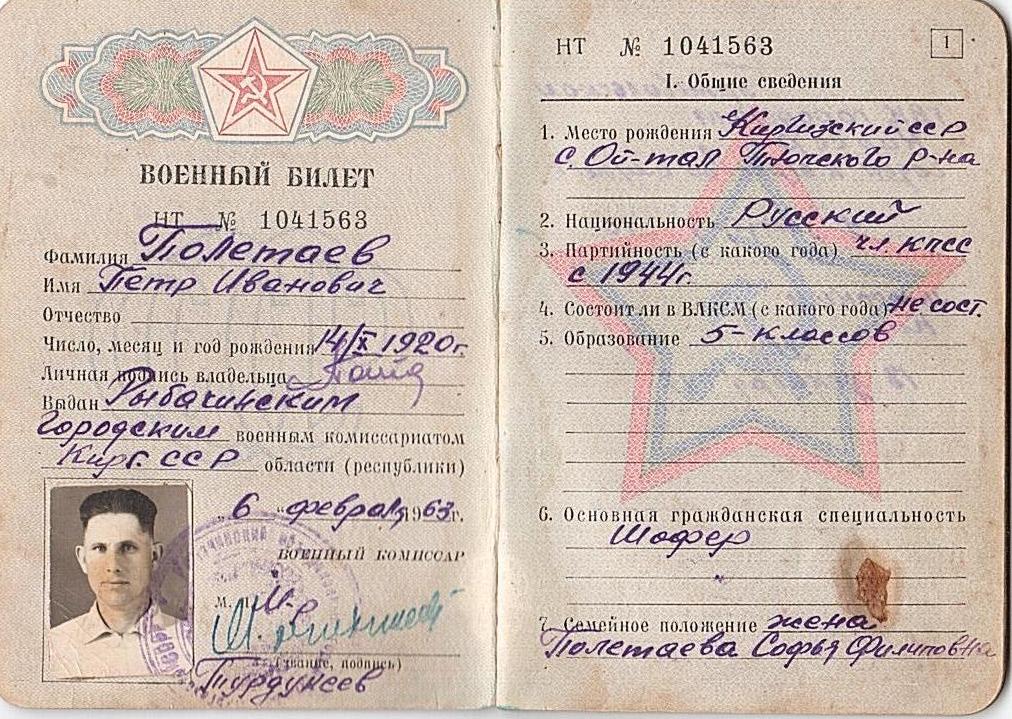 ВОЕННЫЙ БИЛЕТ
НТ № 1041563
Фамилия Полетаев
Имя Петр Иванович
Отчество
Число, месяц и год рождения 14/X 1920г.
Личная подпись владельца
Выдан Рыбачинским
Городским военным комиссариатом
Кирг. ССР области (республики)
„6" февраля 1963г.
ВОЕННЫЙ КОМИССАР
М. П.
(звание, подпись)
Турдумеев
НТ № 1041563
1
I. Общие сведения
1. Место рождения Киргизский ССР
с. Ой-тал Тюпского р-на
2. Национальность Русский
3. Партийность (с какого года) чл. КПСС
с 1944г.
4. Состоит ли в ВЛКСМ (с какого года) не сост.
5. Образование 5-классов
6. Основная гражданская специальность
Шофер
7. Семейное положение жена
Полетаева Софья Филиповна